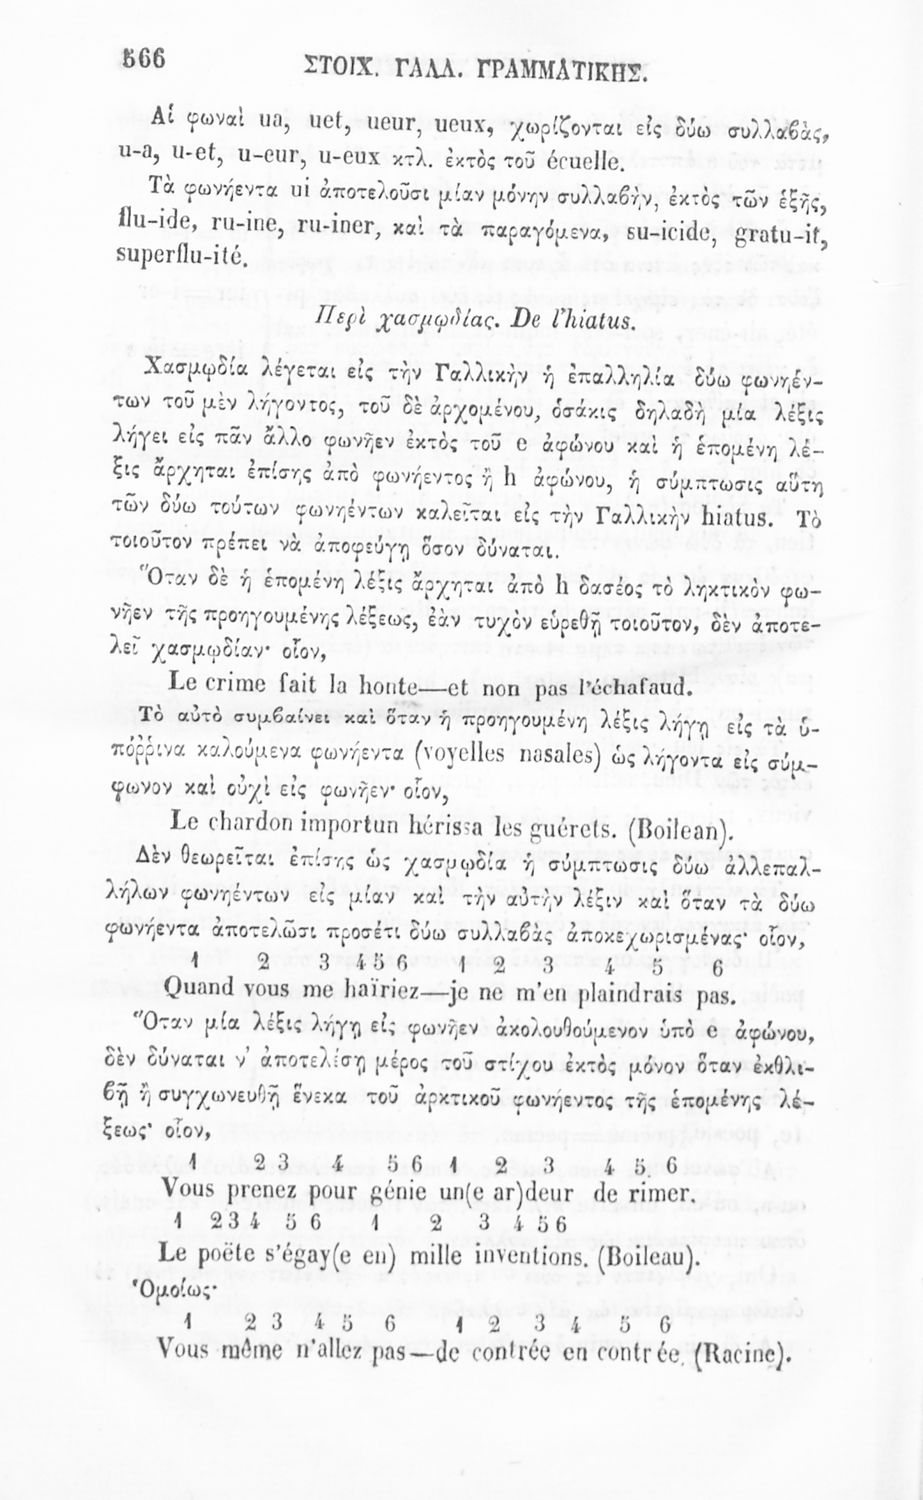 566
ΣΤΟΙΧ. ΓΑΛΛ. ΓΡΑΜΜΑΤΙΚΗΣ.
Αἱ φωναὶ ua, uet, ueur, ueux, χωρίζονται εἰς δύω συλλαβὰς,
u-a, u-et, u-eur, u-eux κτλ. ἐκτὸς τοῦ écuelle.
Τὰ φωνήεντα ui ἀποτελοῦσι μίαν μόνην συλλαβὴν, ἐκτὸς τῶν ἑξῆς,
flu-ide, ru-ine, ru-iner, καὶ τὰ παραγόμενα, su-icide, gratu-it,
superflu-ité.
Περὶ χασμῳδίας. De l'hiatus.
Χασμῳδία λέγεται εἰς τὴν Γαλλικὴν ἡ ἐπαλληλία δύω φωνηέν-
των τοῦ μὲν λήγοντος, τοῦ δὲ ἀρχομένου, ὁσάκις δηλαδὴ μία λέξις
λήγει εἰς πᾶν ἄλλο φωνῆεν ἐκτὸς τοῦ e ἀφώνου καὶ ἡ ἑπομένη λέ-
ξις ἄρχηται ἐπίσης ἀπὸ φωνήεντος ἢ h ἀφώνου, ἡ σύμπτωσις αὕτη
τῶν δύω τούτων φωνηέντων καλεῖται εἰς τὴν Γαλλικὴν hiatus. Τὸ
τοιοῦτον πρέπει νὰ ἀποφεύγῃ ὅσον δύναται.
Ὅταν δὲ ἡ ἑπομένη λέξις ἄρχηται ἀπὸ h δασέος τὸ ληκτικὸν φω-
νῆεν τῆς προηγουμένης λέξεως, ἐὰν τυχὸν εὑρεθῇ τοιοῦτον, δὲν ἀποτε-
λεῖ χασμῳδίαν· οἷον,
Le crime fait la honte—et non pas l'échafaud.
Τὸ αὐτὸ συμβαίνει καὶ ὅταν ἡ προηγουμένη λέξις λήγῃ εἰς τὰ ὑ-
πόῤῥινα καλούμενα φωνήεντα (voyelles nasales) ὡς λήγοντα εἰς σύμ-
φωνον καὶ οὐχὶ εἰς φωνῆεν· οἷον,
Le chardon importun hérissa les guérets. (Boilean).
Δὲν θεωρεῖται ἐπίσης ὡς χασμῳδία ἡ σύμπτωσις δύω ἀλλεπαλ-
λήλων φωνηέντων εἰς μίαν καὶ τὴν αὐτὴν λέξιν καὶ ὅταν τὰ δύω
φωνήεντα ἀποτελῶσι προσέτι δύω συλλαβὰς ἀποκεχωρισμένας· οἷον,
1 2 3 4 5 6 1 2 3 4 5 6
Quand vous me haïriez—je ne m'en plaindrais pas.
Ὅταν μία λέξις λήγῃ εἰς φωνῆεν ἀκολουθούμενον ὑπὸ e ἀφώνου,
δὲν δύναται ν' ἀποτελέσῃ μέρος τοῦ στίχου ἐκτὸς μόνον ὅταν ἐκθλι-
βῇ ἢ συγχωνευθῇ ἕνεκα τοῦ ἀρκτικοῦ φωνήεντος τῆς ἑπομένης λέ-
ξεως· οἷον,
1 2 3 4 5 6 1 2 3 4 5 6
Vous prenez pour génie un(e ar)deur de rimer.
1 2 3 4 5 6 1 2 3 4 5 6
Le poëte s'égay(e en) mille inventions. (Boileau).
Ὁμοίως·
1 2 3 4 5 6 1 2 3 4 5 6
Vous même n'allez pas—de contrée en contrée. (Racine).